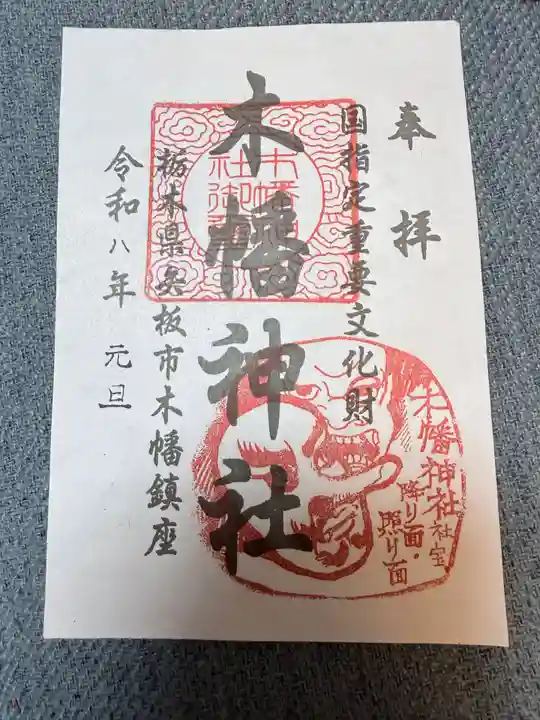 奉拝
国指定重要文化財
木幡神社
栃木県矢板市木幡鎮座
令和八年 元旦
木幡神社社宝
降り面・
照り面